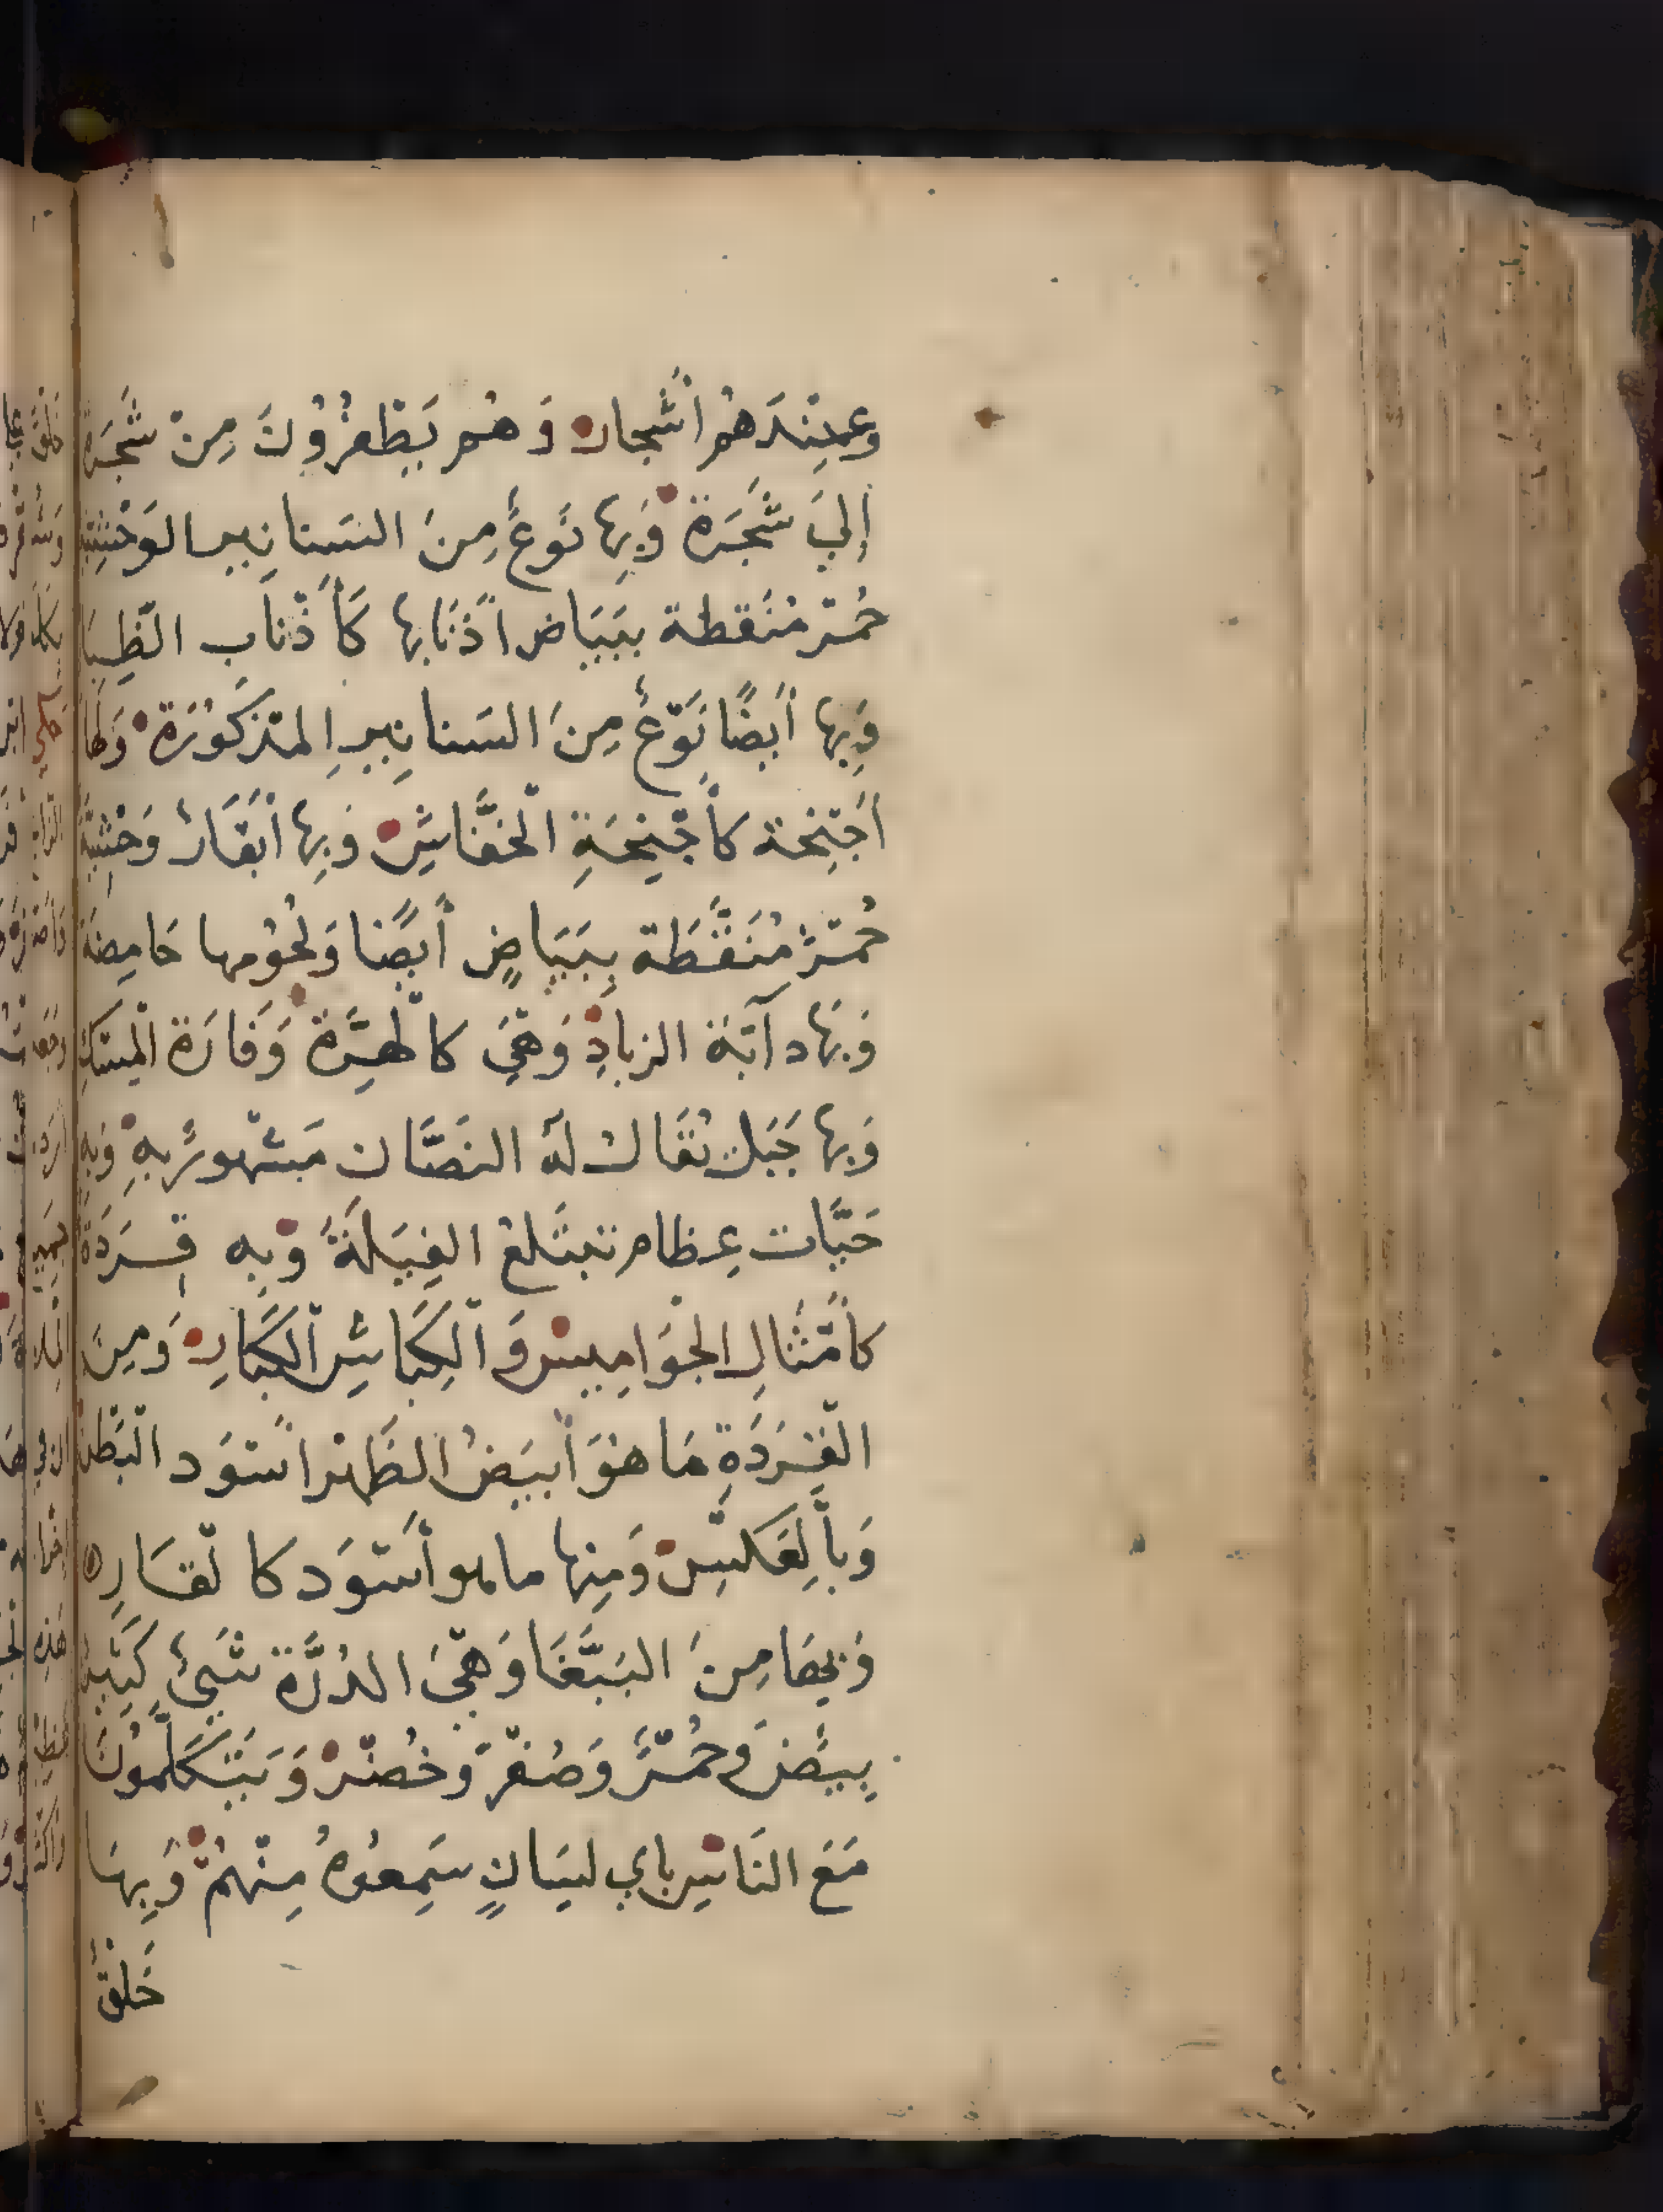 وعِنْدَهُم أشجار وَهُم يَطْفِرُونَ مِنْ شَجَرَةٍ
إِلَي شَجَرَة وَبِها نَوعٌ مِنَ السَنانِير الوَحْشِيَّةِ
حُمْر مُنَقطة ببَيَاض أذنَابها كَأَذْنَاب الظِبَا
وَبِها أيضًا نَوْعٌ مِنَ السَنانِيرِ المذكُورَة وَلَهَا
أَجْنِحَة كأجْنِحَةِ الْخفَّاشِ وَبِها أبْقَارٌ وَحْشِيَّةٌ
حُمْرٌ مُنَقَّطَة بِبَيَاضٍ أيضًا وَلحُومها حَامِضَة
وَبَها دآبَة الزبادِ وَهْيَ كالْهِرَّة وَفَارَة الْمِسْكِ
وَبها جَبَل يُقَال لَهُ النَصَّان مَشْهورٌ بِهِ وَبِهِ
حَيَّات عِظام تبتَلعُ الفِيَلَةَ وَبِه قِرَدَةٌ
كأمْثَالِ الجْوَامِيسِ وَالْكِبَاشِ الْكبَارِ وَمِنَ
الْقِرَدَةِ مَا هُوَ أبيَضُ الظَهْر أسْوَد الْبَطْن
وَبالْعَكْسِ وَمِنها ما هو أسْوَد كالْقَارِ
وَبِهَا مِنَ البَبَّغَا وَهْيَ الدُرَّة شَيْئٌ كَثِيرٌ
بِيضٌ وَحُمْرٌ وَصُفْرٌ وَخُضْرٌ وَيَتَكَلَّمُونَ
مَعَ النَاسِ باي لِسَانٍ سَمِعُوهُ مِنْهُمْ وَبِهَا
خَلْقٌ